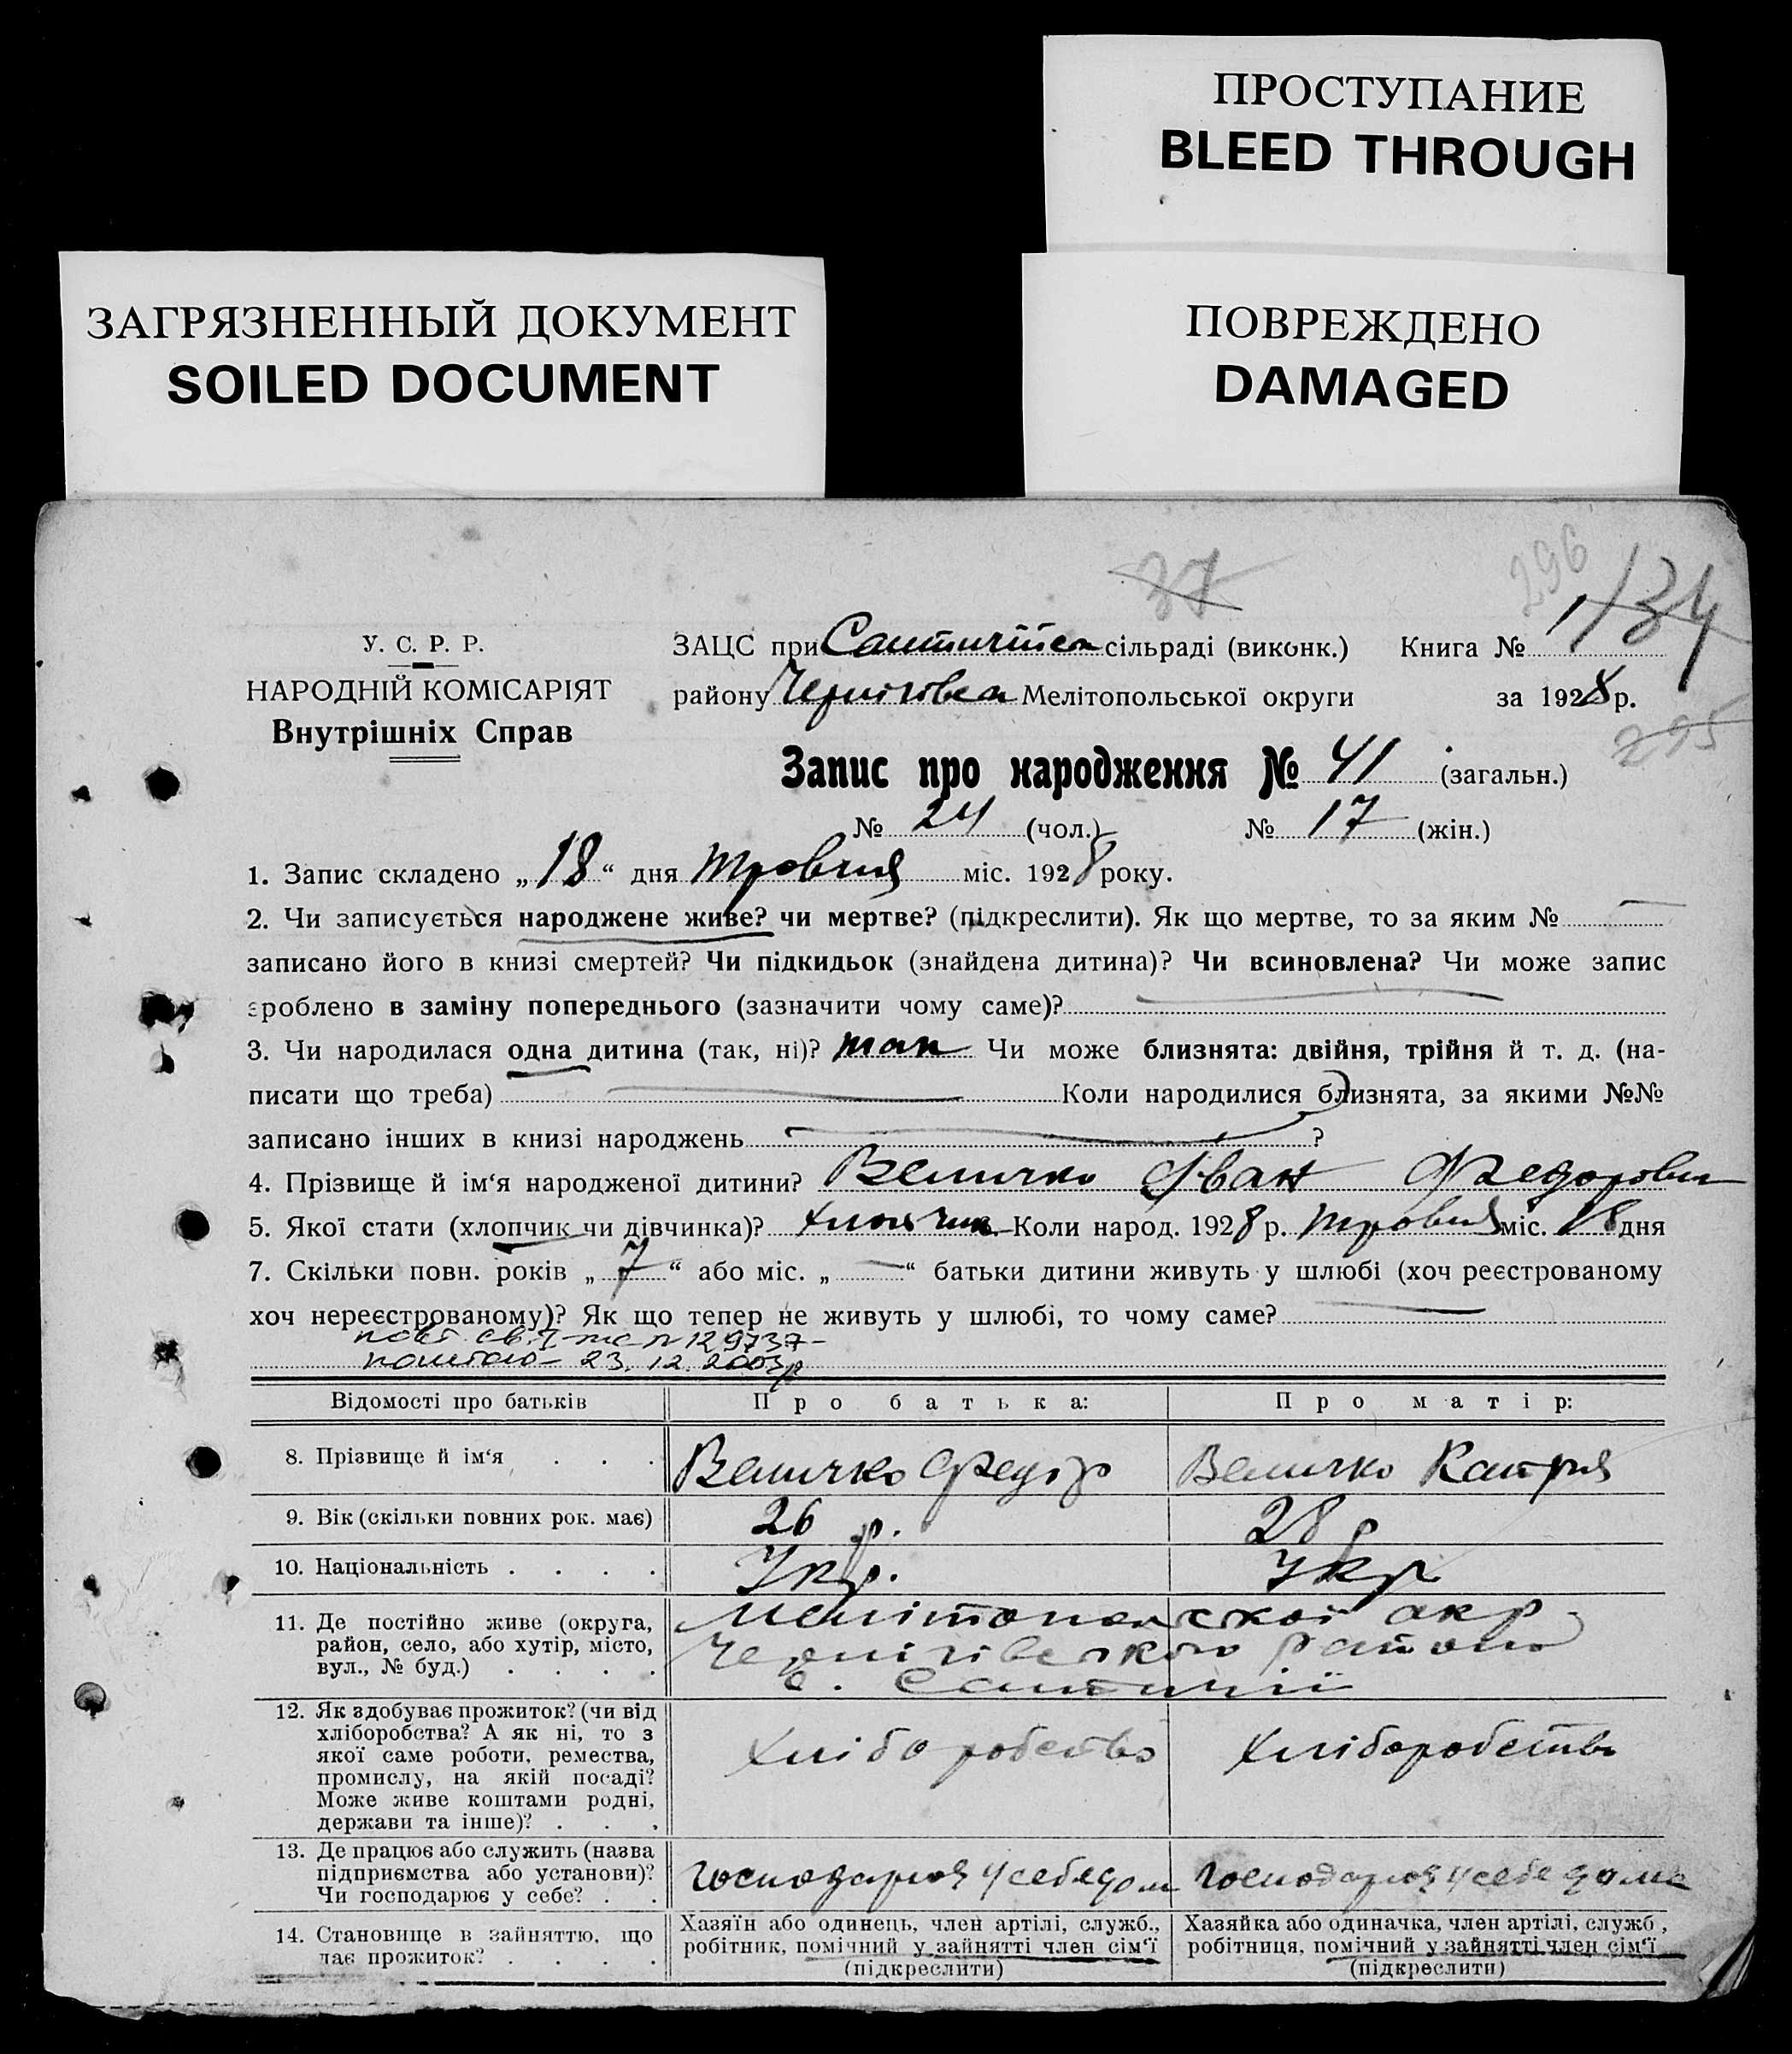 ПРОСТУПАНИЕ
BLEED THROUGH
ЗАГРЯЗНЕННЫЙ ДОКУМЕНТ
SOILED DOCUMENT
ПОВРЕЖДЕНО
DAMAGED
37
296
134
295
У. С. Р. Р.
НАРОДНІЙ КОМІСАРІЯТ
Внутрішніх Справ
ЗАЦС при сільраді (виконк.) Книга № 1
району Мелітопольської округи за 1928 р.
Запис про народження № 41 (загальн.)
№ 24 (чол.) № 17 (жін.)
1. Запис складено „18“ дня травня міс. 1928 року.
2. Чи записується народжене живе? чи мертве? (підкреслити). Як що мертве, то за яким № —
записано його в книзі смертей? Чи підкидьок (знайдена дитина)? Чи всиновлена? Чи може запис
зроблено в заміну попереднього (зазначити чому саме)? —
3. Чи народилася одна дитина (так, ні)? так Чи може близнята: двійня, трійня й т. д. (на-
писати що треба) — Коли народилися близнята, за якими №№
записано інших в книзі народжень — ?
4. Прізвище й ім‘я народженої дитини? Величко Іван Федорович
5. Якої стати (хлопчик чи дівчинка)? хлопчик Коли народ. 1928 р. травня міс. 18 дня
7. Скільки повн. років „7“ або міс. „—“ батьки дитини живуть у шлюбі (хоч реєстрованому
хоч нереєстрованому)? Як що тепер не живуть у шлюбі, то чому саме? —
129737-
23. 12. 2003р
Відомості про батьків Про батька: Про матір:
8. Прізвище й ім‘я . . . Величко Федір Величко Катря
9. Вік (скільки повних рок. має) 26 р. 28 р
10. Національність . . . . Укр. Укр
11. Де постійно живе (округа,
район, село, або хутір, місто,
вул., № буд.) . . . .
Мелітопольської окр.
Чернігівського району
с.
12. Як здобуває прожиток? (чи від
хліборобства? А як ні, то з
якої саме роботи, ремества,
промислу, на якій посаді?
Може живе коштами родні,
держави та інше)? . . .
хліборобство хліборобство
13. Де працює або служить (назва
підприємства або установи)?
Чи господарює у себе? . .
господарює у себе дом господарює у себе дома
14. Становище в зайняттю, що
дає прожиток? . . . .
Хазяїн або одинець, член артілі, служб.,
робітник, помічний у зайнятті член сім‘ї
(підкреслити)
Хазяйка або одиначка, член артілі, служб ,
робітниця, помічний у зайнятті член сім‘ї
(підкреслити)